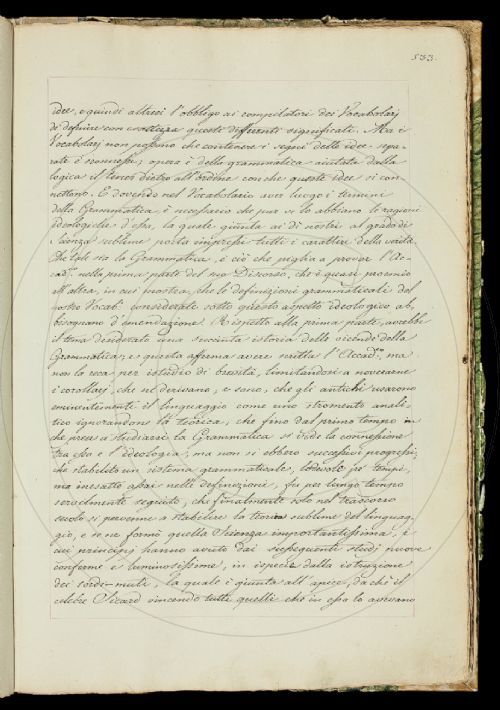 533.
idee, e quindi altresì l'obbligo ai compilatori dei Vocabolarj
di definire con esattezza questi differenti significati. Ma i
Vocabolarj non possono che contenere i segni delle idee sepa-
rate e sconnesse; opera è della grammatica aiutata dalla
logica il tener dietro all'ordine con che queste idee si con-
nettono. E dovendo nel Vocabolario aver luogo i termini
della Grammatica, è necessario che pur vi lo abbiano le ragioni
ideologiche d'essa, la quale giunta ai dì nostri al grado di
Scienza sublime porta impressi tutti i caratteri della verità.
Che tale sia la Grammatica, è ciò che piglia a provar l'Ac-
cad.co nella prima parte del suo Discorso, che è quasi proemio
all'altra, in cui mostra, che le definizioni grammaticali del
nostro Vocab. considerate sotto questo aspetto ideologico ab,
bisognano d'emendazione. Rispetto alla prima parte, avrebbe
il tema desiderato una succinta istoria delle vicende della
Grammatica; e questa afferma avere scritta l'Accad.co, ma
non la reca per istudio di brevità, limitandosi a noverarne
i corollarj, che ne derivano, e sono, che gli antichi usarono
eminentemente il linguaggio come uno stromento anali-
tico ignorandone la teorica, che fino dal primo tempo in
che prese a studiarsi la Grammatica si vide la connessione
tra essa e l'ideologia, ma non si ebbero successivi progressi,
che stabilito un sistema grammaticale, lodevole pe' tempi,
ma inesatto assai nelle definizioni, fu per lungo tempo
servilmente seguito, che finalmente solo nel trascorso
secolo si pervenne a stabilire la teoria sublime del linguag,
gio, e se ne formò quella Scienza importantissima, i
cui principj hanno avuto dai susseguenti studj nuove
conferme e luminosissime, in ispecie dalla istruzione
dei sordi-muti, la quale è giunta all'apice, da che il
celebre Sicard vincendo tutti quelli che in essa lo avevano